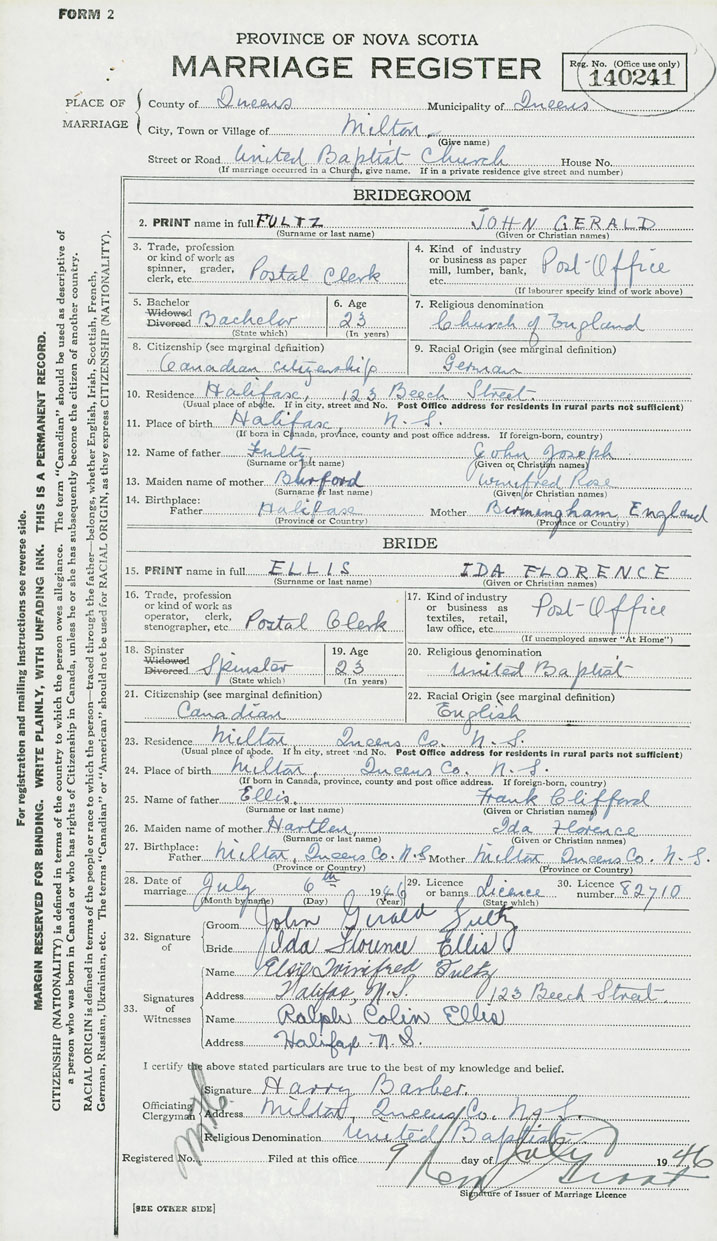 FORM 2
PROVINCE OF NOVA SCOTIA
MARRIAGE REGISTER
Reg. No. (Office use only)
140241
PLACE OF MARRIAGE
County of Queens Municipality of Queens
City, Town or Village of Milton
(Give name)
Street or Road United Baptist Church House No.
(If marriage occurred in a Church, give name. If in a private residence give street and number)
BRIDEGROOM
2. PRINT name in full FULTZ JOHN GERALD
(Surname or last name) (Given or Christian names)
3. Trade, profession or kind of work as spinner, grader, clerk, etc. Postal Clerk
4. Kind of industry or business as paper mill, lumber, bank, etc. Post-Office
(If labourer specify kind of work above)
5. Bachelor Widowed Divorced Bachelor
(State which)
6. Age 23
(In years)
7. Religious denomination
Church of England
8. Citizenship (see marginal definition)
Canadian citizenship
9. Racial Origin (see marginal definition)
German
10. Residence Halifax, 123 Beech Street.
(Usual place of abode. If in city, street and No. Post Office address for residents in rural parts not sufficient)
11. Place of birth Halifax, N. S.
(If born in Canada, province, county and post office address. If foreign-born, country)
12. Name of father Fultz, John Joseph
(Surname or last name) (Given or Christian names)
13. Maiden name of mother Burford Winifred Rose
(Surname or last name) (Given or Christian names)
14. Birthplace: Father Halifax Mother Birmingham England
(Province or Country) (Province or Country)
BRIDE
15. PRINT name in full ELLIS IDA FLORENCE
(Surname or last name) (Given or Christian names)
16. Trade, profession or kind of work as operator, clerk, stenographer, etc. Postal Clerk
17. Kind of industry or business as textiles, retail, law office, etc. Post-Office
(If unemployed answer "At Home")
18. Spinster Widowed Divorced Spinster
(State which)
19. Age 23
(In years)
20. Religious denomination
United Baptist
21. Citizenship (see marginal definition)
Canadian
22. Racial Origin (see marginal definition)
English
23. Residence Milton Queens Co. N. S.
(Usual place of abode. If in city, street and No. Post Office address for residents in rural parts not sufficient)
24. Place of birth Milton, Queens Co. N. S.
(If born in Canada, province, county and post office address. If foreign-born, country)
25. Name of father Ellis, Frank Clifford
(Surname or last name) (Given or Christian names)
26. Maiden name of mother Hartlen, Ida Florence
(Surname or last name) (Given or Christian names)
27. Birthplace: Father Milton, Queens Co. N. S. Mother Milton Queens Co. N. S.
(Province or Country) (Province or Country)
28. Date of marriage July 6th 1946
(Month by name) (Day) (Year)
29. Licence or banns Licence
(State which)
30. Licence number 82710
32. Signature of
Groom John Gerald Fultz
Bride Ida Florence Ellis
33. Signatures of Witnesses
Name Elsie Winifred Fultz
Address Halifax, N. S. 123 Beech Street.
Name Ralph Colin Ellis
Address Halifax N. S.
I certify the above stated particulars are true to the best of my knowledge and belief.
Officiating Clergyman
Signature Harry Barber.
Address Milton, Queens Co. N. S.
Religious Denomination United Baptist
Registered No. Filed at this office 9 day of July 1946
Signature of Issuer of Marriage Licence
[SEE OTHER SIDE]
For registration and mailing instructions see reverse side.
MARGIN RESERVED FOR BINDING. WRITE PLAINLY, WITH UNFADING INK. THIS IS A PERMANENT RECORD.
CITIZENSHIP (NATIONALITY) is defined in terms of the country to which the person owes allegiance. The term "Canadian" should be used as descriptive of
a person who was born in Canada or who has rights of Citizenship in Canada, unless he or she has subsequently become the citizen of another country.
RACIAL ORIGIN is defined in terms of the people or race to which the person—traced through the father—belongs, whether English, Irish, Scottish, French,
German, Russian, Ukrainian, etc. The terms "Canadian" or "American" should not be used for RACIAL ORIGIN, as they express CITIZENSHIP (NATIONALITY).